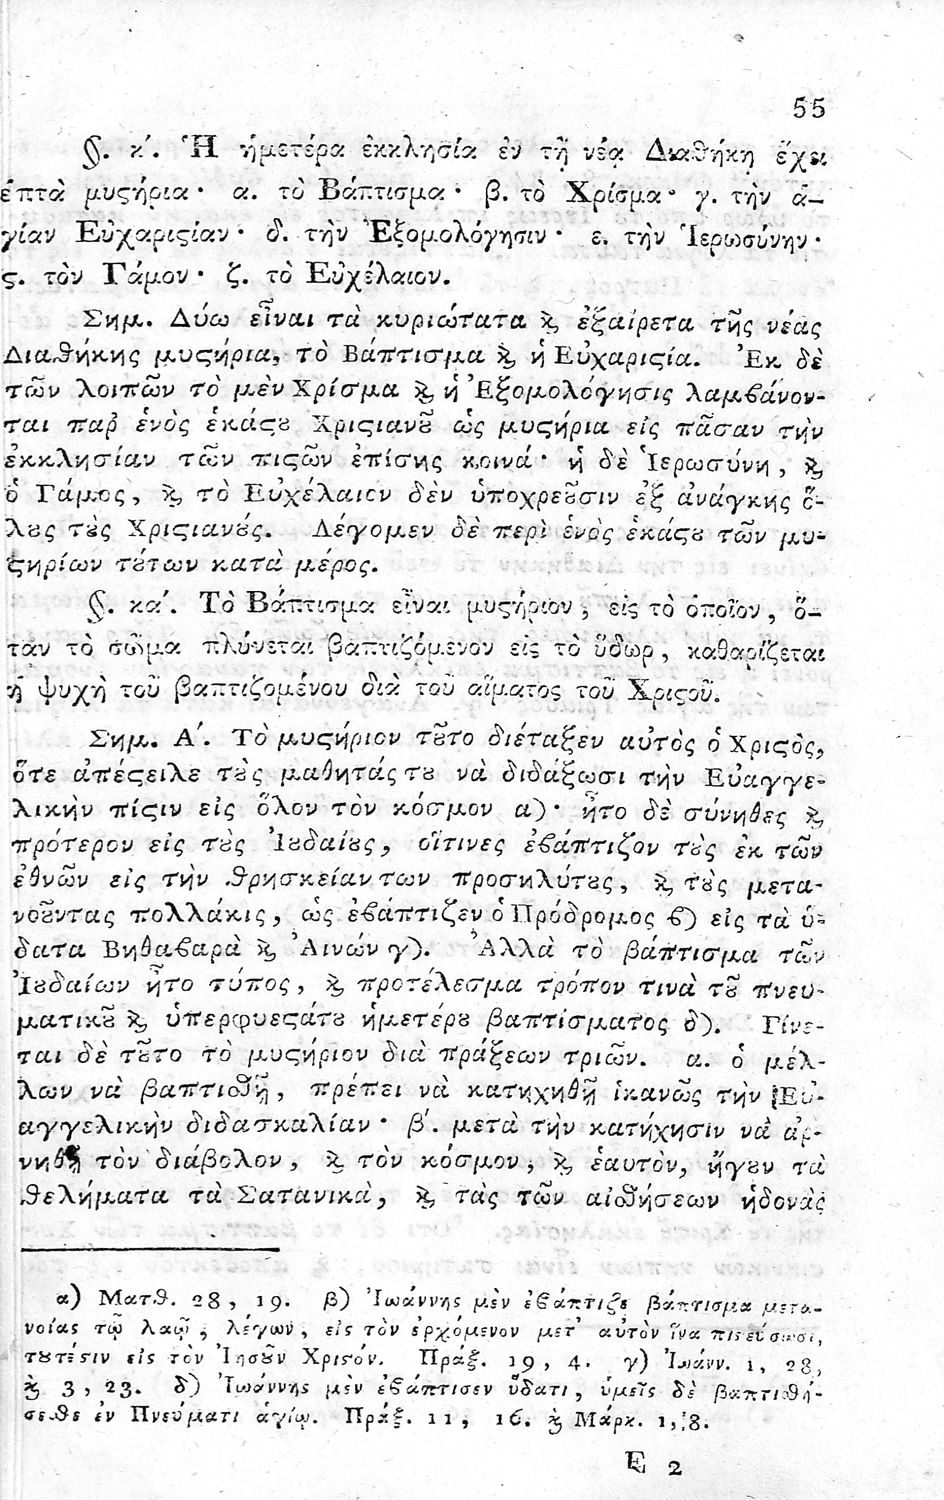 55
§. κ'. Ἡ ἡμετέρα ἐκκλησία ἐν τῇ νέᾳ Διαθήκῃ ἔχει
ἑπτὰ μυϛήρια· α. τὸ Βάπτισμα· β. τὸ Χρίσμα· γ. τὴν ἁ-
γίαν Εὐχαριϛίαν· δ. τὴν Ἐξομολόγησιν· ε. τὴν Ἱερωσύνην·
ϛ. τὸν Γάμον· ζ. τὸ Εὐχέλαιον.
Σημ. Δύω εἶναι τὰ κυριώτατα ϗ ἐξαίρετα τῆς νέας
Διαθήκης μυϛήρια, τὸ Βάπτισμα ϗ ἡ Εὐχαριϛία. Ἐκ δὲ
τῶν λοιπῶν τὸ μὲν Χρίσμα ϗ ἡ Ἐξομολόγησις λαμϐάνον-
ται παρ' ἑνὸς ἑκάϛȣ Χριϛιανȣ͂ ὡς μυϛήρια εἰς πᾶσαν τὴν
ἐκκλησίαν τῶν πιϛῶν ἐπίσης κοινά· ἡ δὲ Ἱερωσύνη, ϗ
ὁ Γάμος, ϗ τὸ Εὐχέλαιον δὲν ὑποχρεȣ͂σιν ἐξ ἀνάγκης ὅ-
λȣς τȣ̀ς Χριϛιανȣ́ς. Λέγομεν δὲ περὶ ἑνὸς ἑκάϛȣ τῶν μυ-
ϛηρίων τȣ́των κατὰ μέρος.
§. κα'. Τὸ Βάπτισμα εἶναι μυϛήριον, εἰς τὸ ὁποῖον, ὅ-
ταν τὸ σῶμα πλύνεται βαπτιζόμενον εἰς τὸ ὕδωρ, καθαρίζεται
ἡ ψυχὴ τοῦ βαπτιζομένου διὰ τοῦ αἵματος τοῦ Χριϛοῦ.
Σημ. Α'. Τὸ μυϛήριον τȣ͂το διέταξεν αὐτὸς ὁ Χριϛὸς,
ὅτε ἀπέϛειλε τȣ̀ς μαθητάς τȣ νὰ διδάξωσι τὴν Εὐαγγε-
λικὴν πίϛιν εἰς ὅλον τὸν κόσμον α)· ἦτο δὲ σύνηθες ϗ
πρότερον εἰς τȣ̀ς Ἰȣδαίȣς, οἵτινες ἐϐάπτιζον τȣ̀ς ἐκ τῶν
ἐθνῶν εἰς τὴν θρησκείαν των προσηλύτȣς, ϗ τȣ̀ς μετα-
νοȣ͂ντας πολλάκις, ὡς ἐϐάπτιζεν ὁ Πρόδρομος ϐ) εἰς τὰ ὕ-
δατα Βηθαϐαρὰ ϗ Ἀινών γ). Ἀλλὰ τὸ βάπτισμα τῶν
Ἰȣδαίων ἦτο τύπος, ϗ προτέλεσμα τρόπον τινὰ τȣ͂ πνευ-
ματικȣ͂ ϗ ὑπερφυεϛάτȣ ἡμετέρȣ βαπτίσματος δ). Γίνε-
ται δὲ τȣ͂το τὸ μυϛήριον διὰ πράξεων τριῶν. α. ὁ μέλ-
λων νὰ βαπτισθῇ, πρέπει νὰ κατηχηθῇ ἱκανῶς τὴν Εὐ-
αγγελικὴν διδασκαλίαν· β'. μετὰ τὴν κατήχησιν νὰ ἀρ-
νηθῇ τὸν διάβολον, ϗ τὸν κόσμον, ϗ ἑαυτὸν, ἤγȣν τὰ
θελήματα τὰ Σατανικὰ, ϗ τὰς τῶν αἰσθήσεων ἡδονὰς
α) Ματθ. 28, 19. β) Ἰωάννης μὲν ἐϐάπτιζε βάπτισμα μετα-
νοίας τῷ λαῷ, λέγων, εἰς τὸν ἐρχόμενον μετ' αὐτὸν ἵνα πιϛεύσωσι,
τȣτέϛιν εἰς τὸν Ἰησȣ͂ν Χριϛόν. Πράξ. 19, 4. γ) Ἰωάνν. 1, 28,
ϗ 3, 23. δ) Ἰωάννης μὲν ἐϐάπτισεν ὕδατι, ὑμεῖς δὲ βαπτισθή-
σεσθε ἐν Πνεύματι ἁγίῳ. Πράξ. 11, 16. ϗ Μάρκ. 1, 8.
Ε 2